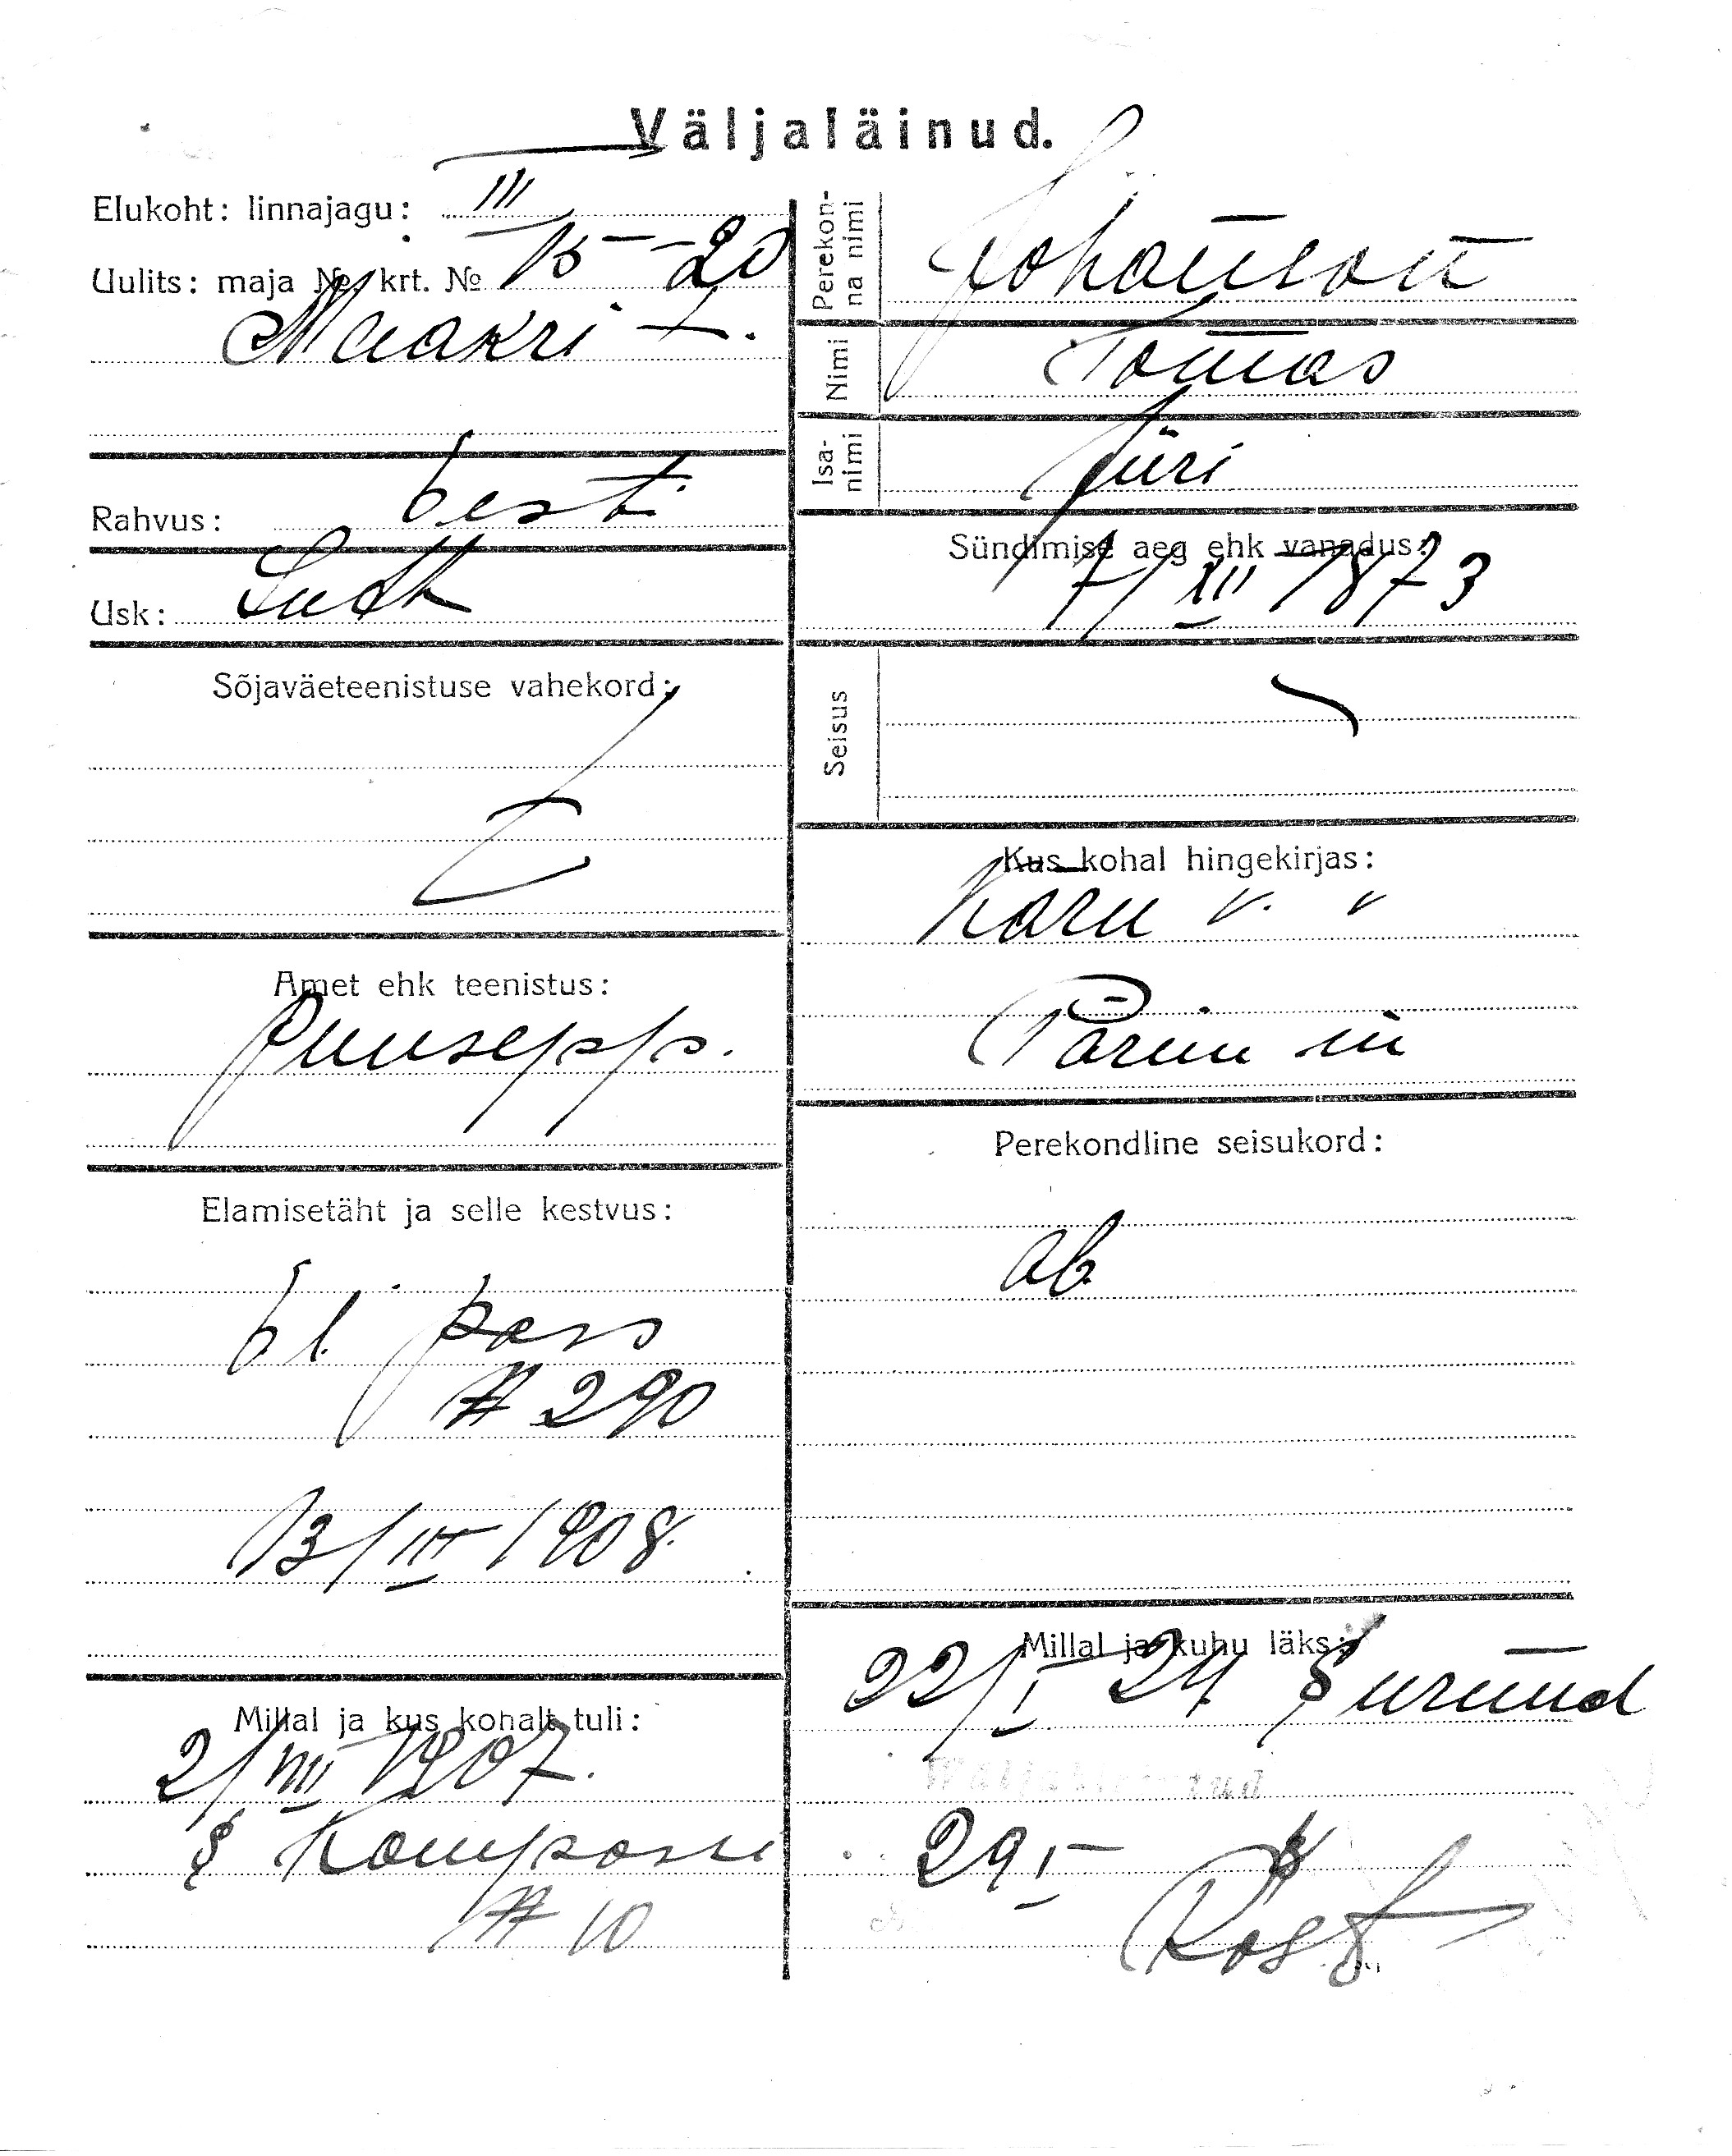 Väljaläinud.
Elukoht: linnajagu: III
Uulits: maja № krt. № 15 - 20
Maakri t.
Rahvus: Eesti
Usk: Luth
Sõjaväeteenistuse vahekord:
Amet ehk teenistus:
Puusepp.
Elamisetäht ja selle kestvus:
pass
№ 290
13/III 1908.
Millal ja kus kohalt tuli:
2/VIII 1907.
№ 10
Perekonna nimi Johanson
Nimi Tomas
Isanimi Jüri
Sündimise aeg ehk vanadus:
7/XII 1873
Seisus
Kus kohal hingekirjas:
Karu v.
Pärnu m
Perekondline seisukord:
ab.
Millal ja kuhu läks:
22/I 24 Surnud